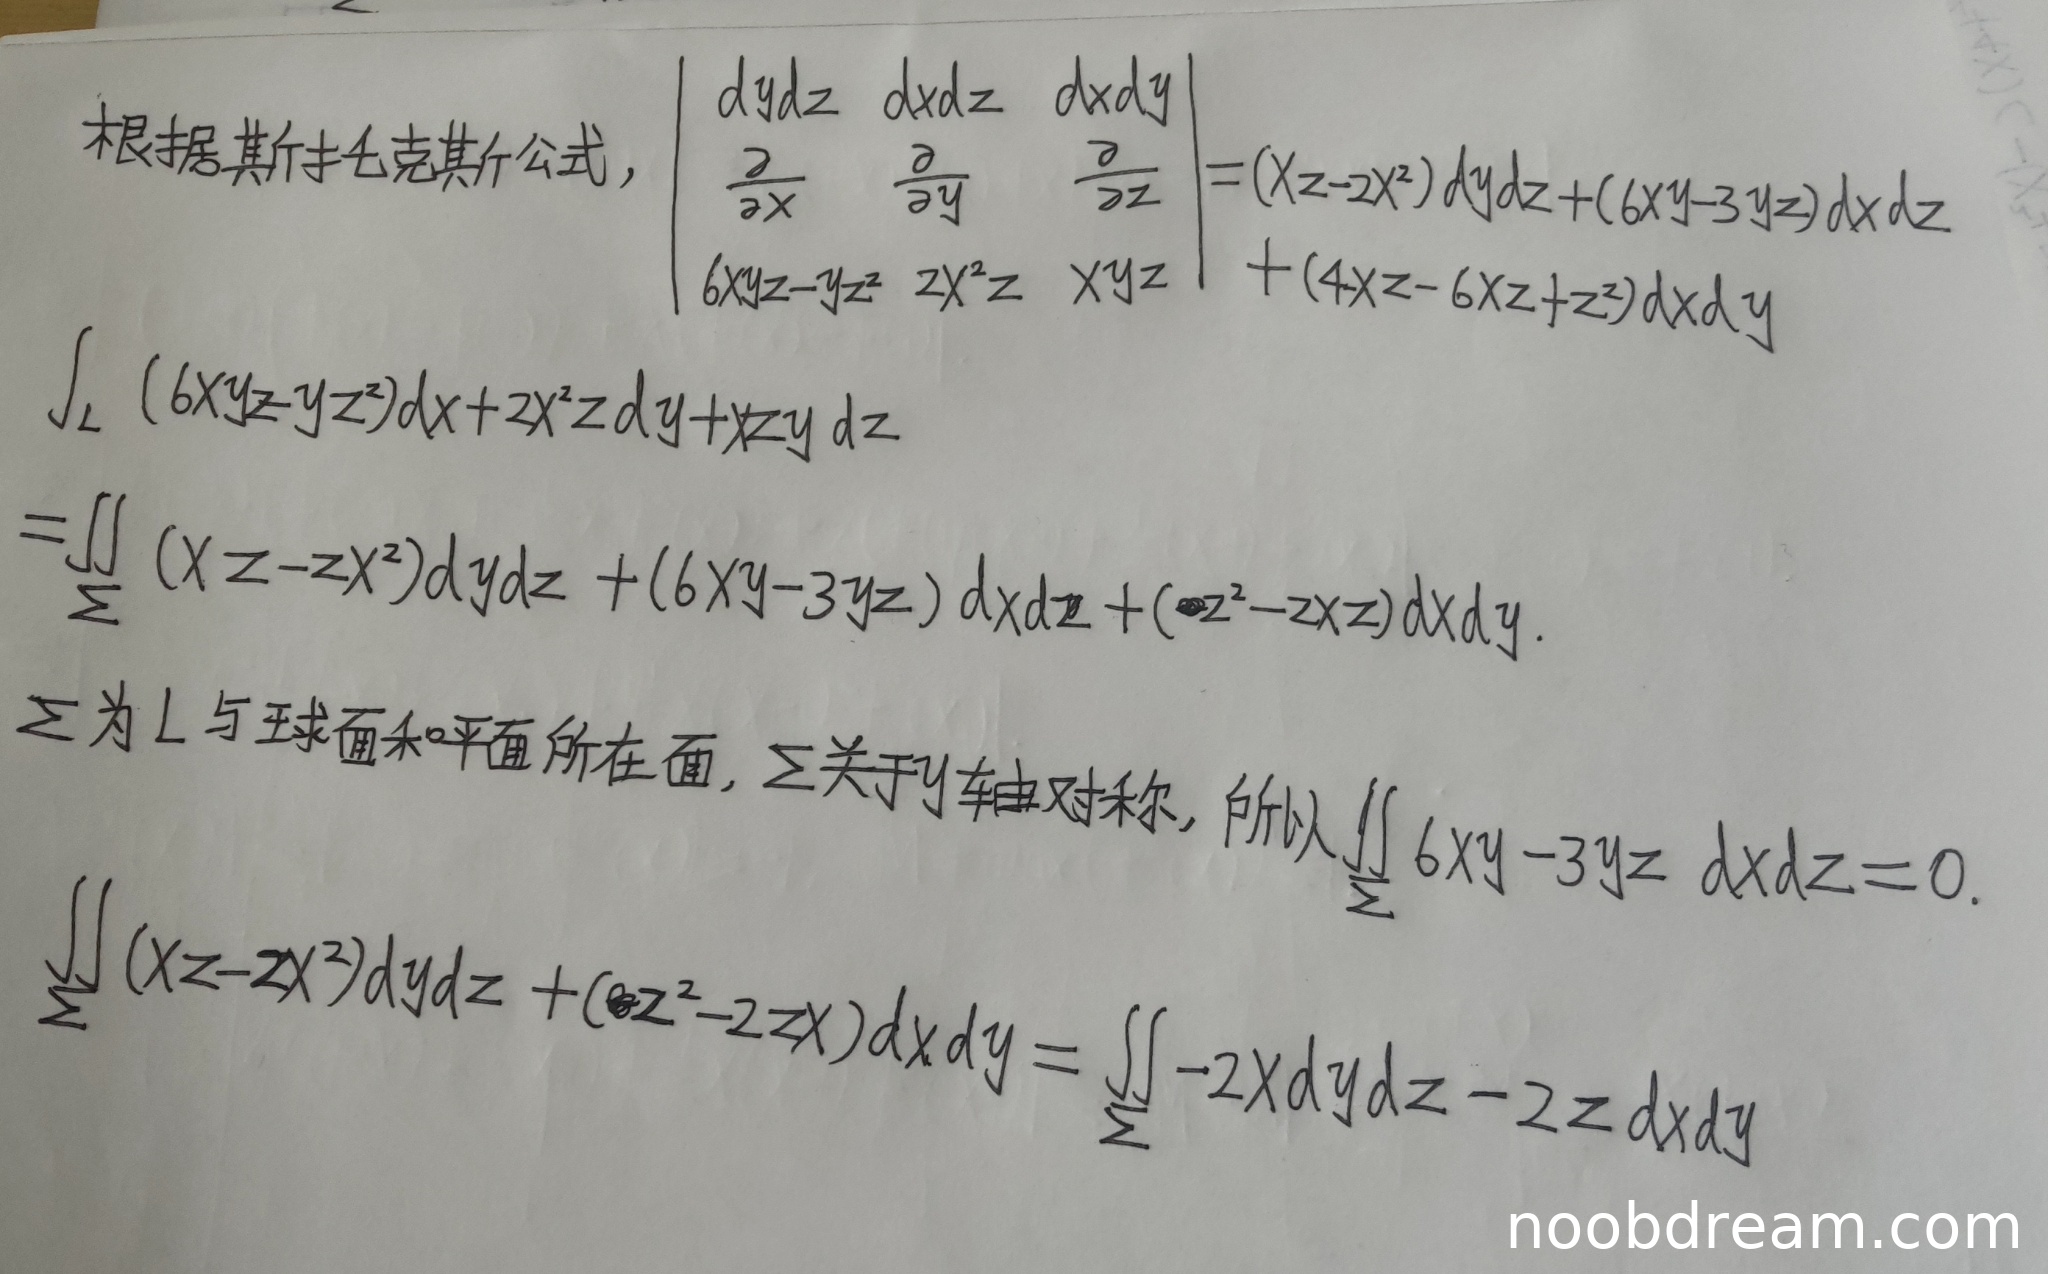 根据斯托克斯公式, | dydz dxdz dxdy | =(xz-2x²)dydz+(6xy-3yz)dxdz
∂/∂x ∂/∂y ∂/∂z
6xyz-yz² 2x²z xyz +(4xz-6xz+z²)dxdy
∫_L (6xyz-yz²)dx+2x²zdy+xzydz
=∬_Σ (xz-2x²)dydz+(6xy-3yz)dxdz+(z²-2xz)dxdy.
Σ为L与球面和平面所在面, Σ关于y轴对称, 所以∬_Σ 6xy-3yz dxdz=0.
∬_Σ (xz-2x²)dydz+(z²-2zx)dxdy=∬_Σ -2xdydz-2zdxdy
noobdream.com